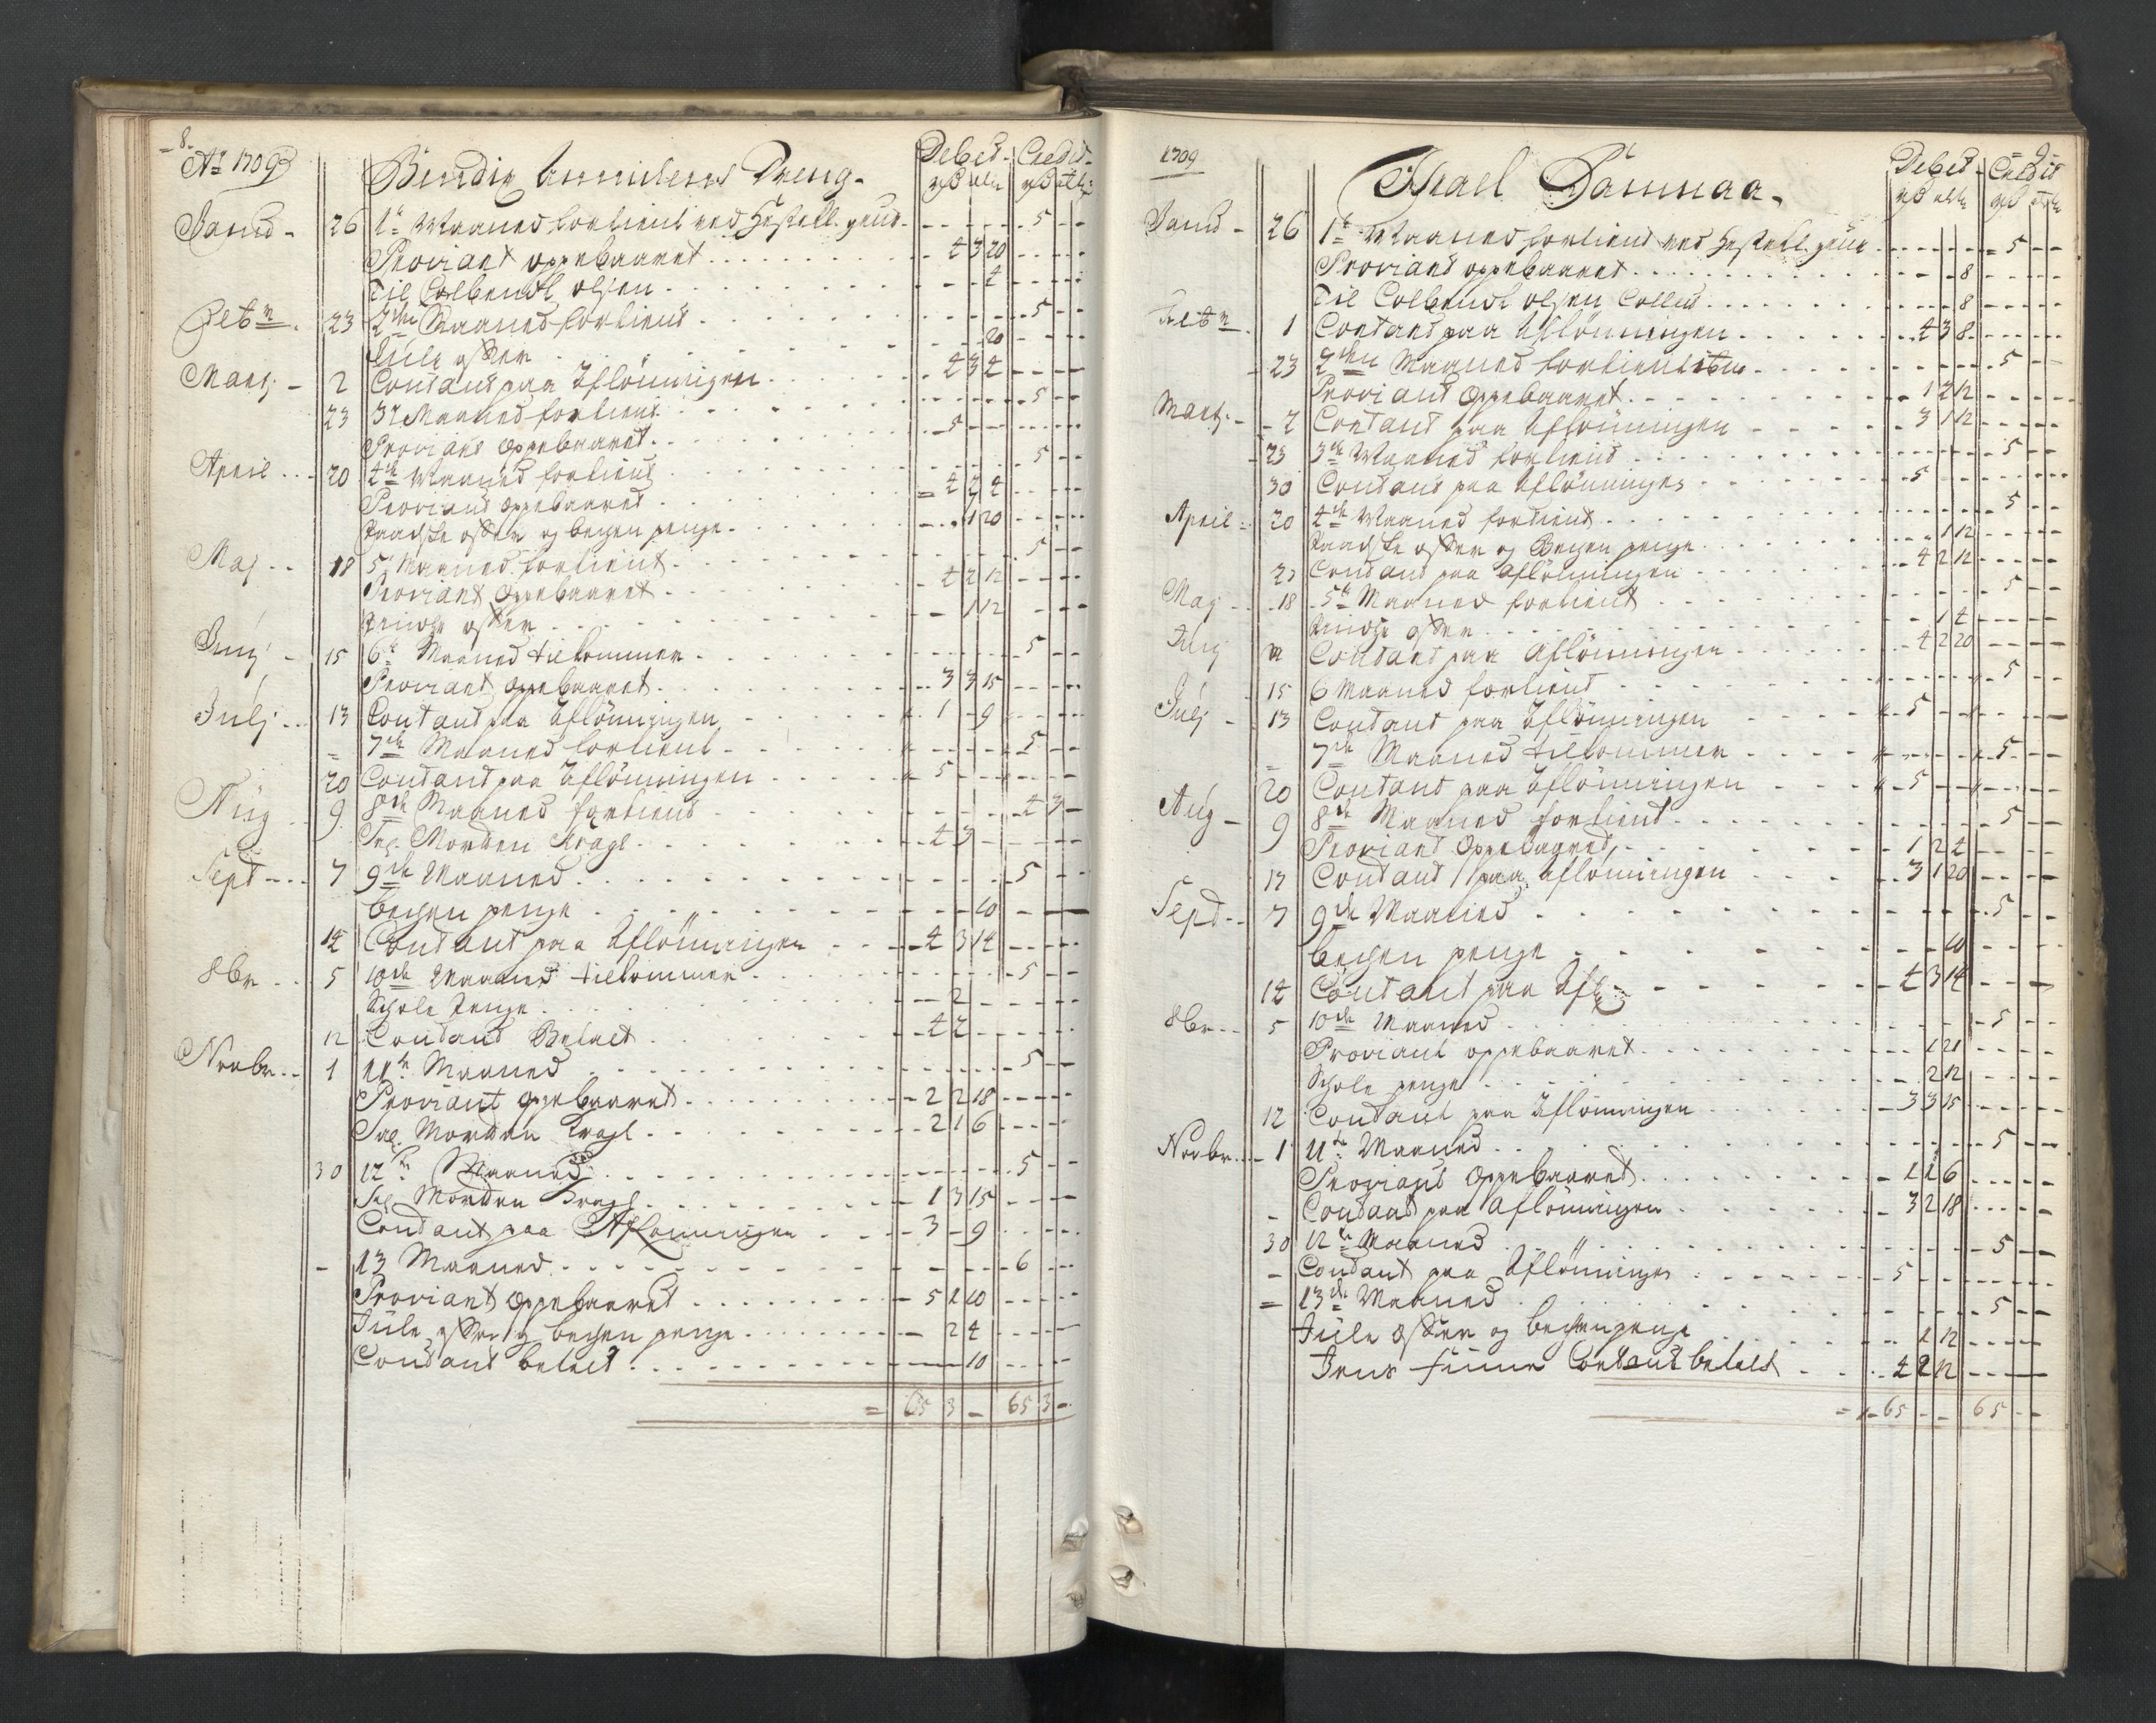 - 8.
Ao 1709 Debet. Credit.
Dreng.
Janu - 26 1te Maaned fortient ved - - - 5 - -
Proviant oppebaaret - 4 3 20
Til Colbendt olsen - - - 4
Febr. 23 2den Maaned fortient - - - 5 - -
Jule offer - - 20
Marti - 2 Contant paa Aflønningen - 4 3 4
23 3die Maaned fortient - - - 5 - -
Proviant oppebaaret - 5 - -
April - 20 4de Maaned fortient - - - 5 - -
Proviant oppebaaret = 4 2 4
Paaske offer og becken penge - 1 20
Maj - 18 5te Maaned fortient - - - 5 - -
Proviant oppebaaret - 4 2 12
Pindse offer - 1 12
Junj - 15 6te Maaned tilkommer - - - 5 - -
Proviant oppebaaret - 3 3 15
Julj - 13 Contant paa Aflønningen - 1 - 9
= 7de Maaned fortient - - - 5 - -
20 Contant paa Aflønningen - 5 - -
Aug - 9 8de Maaned fortient - - - 4 3 -
Morten Kragl - 4 3 -
Sept - 7 9de Maaned - - - 5 - -
becken penge - - 10
14 Contant paa Aflønningen - 4 3 14
8br - 5 10de Maaned tilkommer - - - 5 - -
Schole Penge - - 2 -
12 Contant Betalt - 4 2 -
Novbr - 1 11te Maaned - - - 5 - -
Proviant oppebaaret - 2 2 18
Morten Kragl - 2 1 6
30 12te Maaned - - - 5 - -
Morten Kragl - 1 3 15
Contant paa Aflønningen - 3 - 9
- 13 Maaned - - - 6 - -
Proviant oppebaaret - 5 1 10
Jule offer og becken penge - 2 4
Contant betalt - - 10
= 65 3 - 65 3 -
= 9 =
1709 Israel Debet - Credit
Janu - 26 1te Maaned fortient ved - - - 5 - -
Proviant oppebaaret - - 8
Til Colbendt olsen - - 8
Febr. 1 Contant paa Aflønningen - 4 3 8
- 23 2den Maaned fortient - - - 5 - -
Proviant oppebaaret - 1 2 12
Marti - 2 Contant paa Aflønningen - 3 1 12
- 23 3die Maaned fortient - - - 5 - -
30 Contant paa Aflønningen - 5 - -
April - 20 4de Maaned fortient - - - 5 - -
Paaske offer og Becken penge - 1 12
27 Contant paa Aflønningen - 4 2 12
Maj - 18 5te Maaned fortient - - - 5 - -
Pindse offer - 1 4
Junj Contant paa Aflønningen - 4 2 20
15 6 Maaned fortient - - - 5 - -
Julj - 13 Contant paa Aflønningen - 5 - -
= 7de Maaned tilkommer - - - 5 - -
20 Contant paa Aflønningen - 5 - -
Aug - 9 8de Maaned fortient - - - 5 - -
Proviant oppebaaret - 1 2 4
17 Contant paa Aflønningen - 3 1 20
Sept - 7 9de Maaned - - - 5 - -
becken penge - - 10
14 Contant paa Afl: - 4 3 14
8br - 5 10de Maaned - - - 5 - -
Proviant oppebaaret - 1 21
Schole penge - 2 12
12 Contant paa Aflønningen - 3 3 15
Novbr - 1 11te Maaned - - - 5 - -
Proviant oppebaaret - 1 1 6
- Contant paa Aflønningen - 3 2 18
30 12te Maaned - - - 5 - -
- Contant paa Aflønningen - 5 - -
= 13de Maaned - - - 5 - -
Jule offer og beckenpenge - 1 12
Contant betalt - 4 2 12
= 65 - - 65 - -